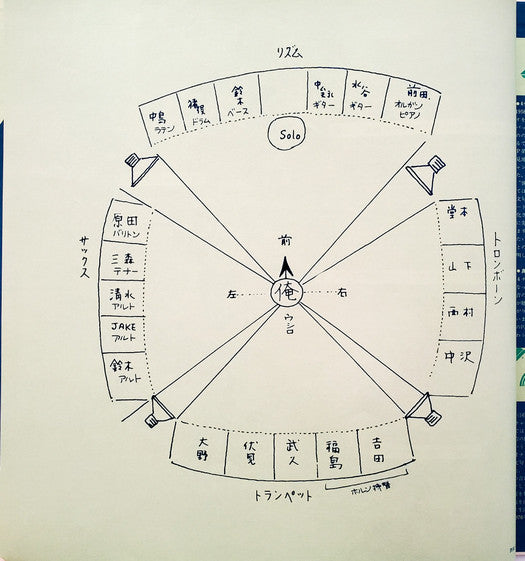 リズム
中島
ラテン
猪俣
ドラム
鈴木
ベース
中牟礼
ギター
水谷
ギター
前田
オルガン
ピアノ
Solo
サックス
原田
バリトン
三森
テナー
清水
アルト
JAKE
アルト
鈴木
アルト
前
左
俺
右
ウシロ
トロンボーン
堂本
山下
西村
中沢
大野
伏見
武久
福島
吉田
トランペット
ホルン持替